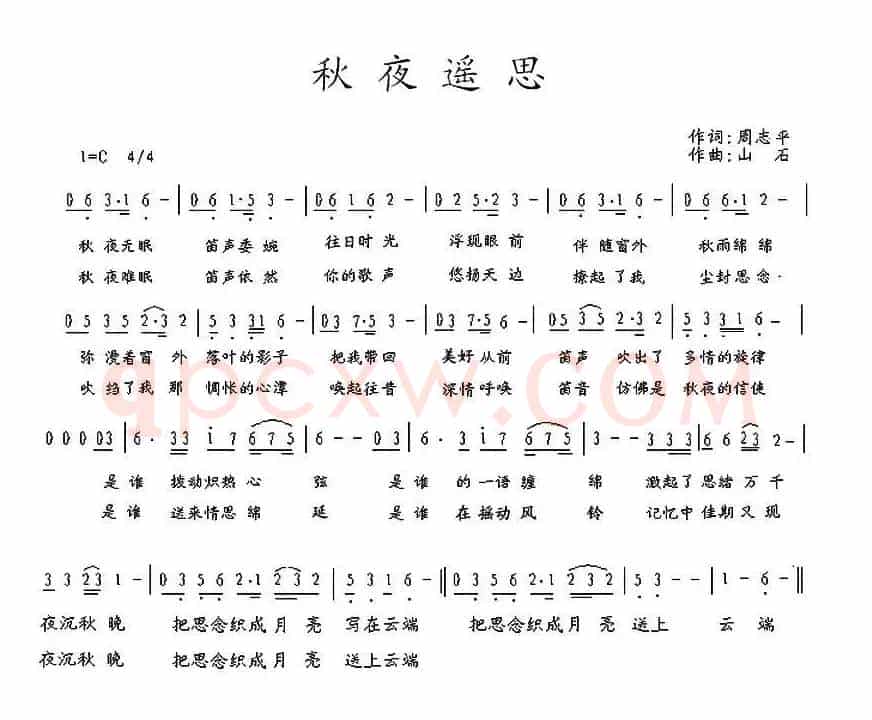 秋夜遥思
作词:周志平
1=C 4/4 作曲:山 石
0 6 3·1 6 - | 0 6 1·5 3 - | 0 6 1 6 2 - | 0 2 5·2 3 - | 0 6 3·1 6 - | 0 6 6·1 2 - |
秋夜无眠 笛声委婉 往日时光 浮现眼前 伴随窗外 秋雨绵绵
秋夜难眠 笛声依然 你的歌声 悠扬天边 撩起了我 尘封思念·
0 5 3 5 2·3 2 | 5 3 3 1 6 - | 0 3 7·5 3 - | 0 3 7·5 5 - | 0 5 3 5 2·3 2 | 5 3 3 1 6 - |
弥漫着窗 外 落叶的影子 把我带回 美好从前 笛声 吹出了 多情的旋律
吹绉了我 那 惆怅的心潭 唤起往昔 深情呼唤 笛音 仿佛是 秋夜的信使
qpcxw.com
0 0 0 0 3 | 6· 3 3 i 7 6 7 5 | 6 - - 0 3 | 6· 3 i 7 6 7 5 | 3 - - 3 3 3 | 6 6 2 3 2 - |
是谁 拨动炽热心 弦 是谁 的一语缠 绵 激起了思绪万千
是谁 送来情思绵 延 是谁 在摇动风 铃 记忆中佳期又现
3 3 2 3 1 - | 0 3 5 6 2·1 2 3 2 | 5 3 5 6 - || 0 3 5 6 2·1 2 3 2 | 5 3 5 - | 1 - 6 - ||
夜沉秋晚 把思念织成月 亮 写在云端 把思念织成月 亮 送上 云 端
夜沉秋晚 把思念织成月 亮 送上云端